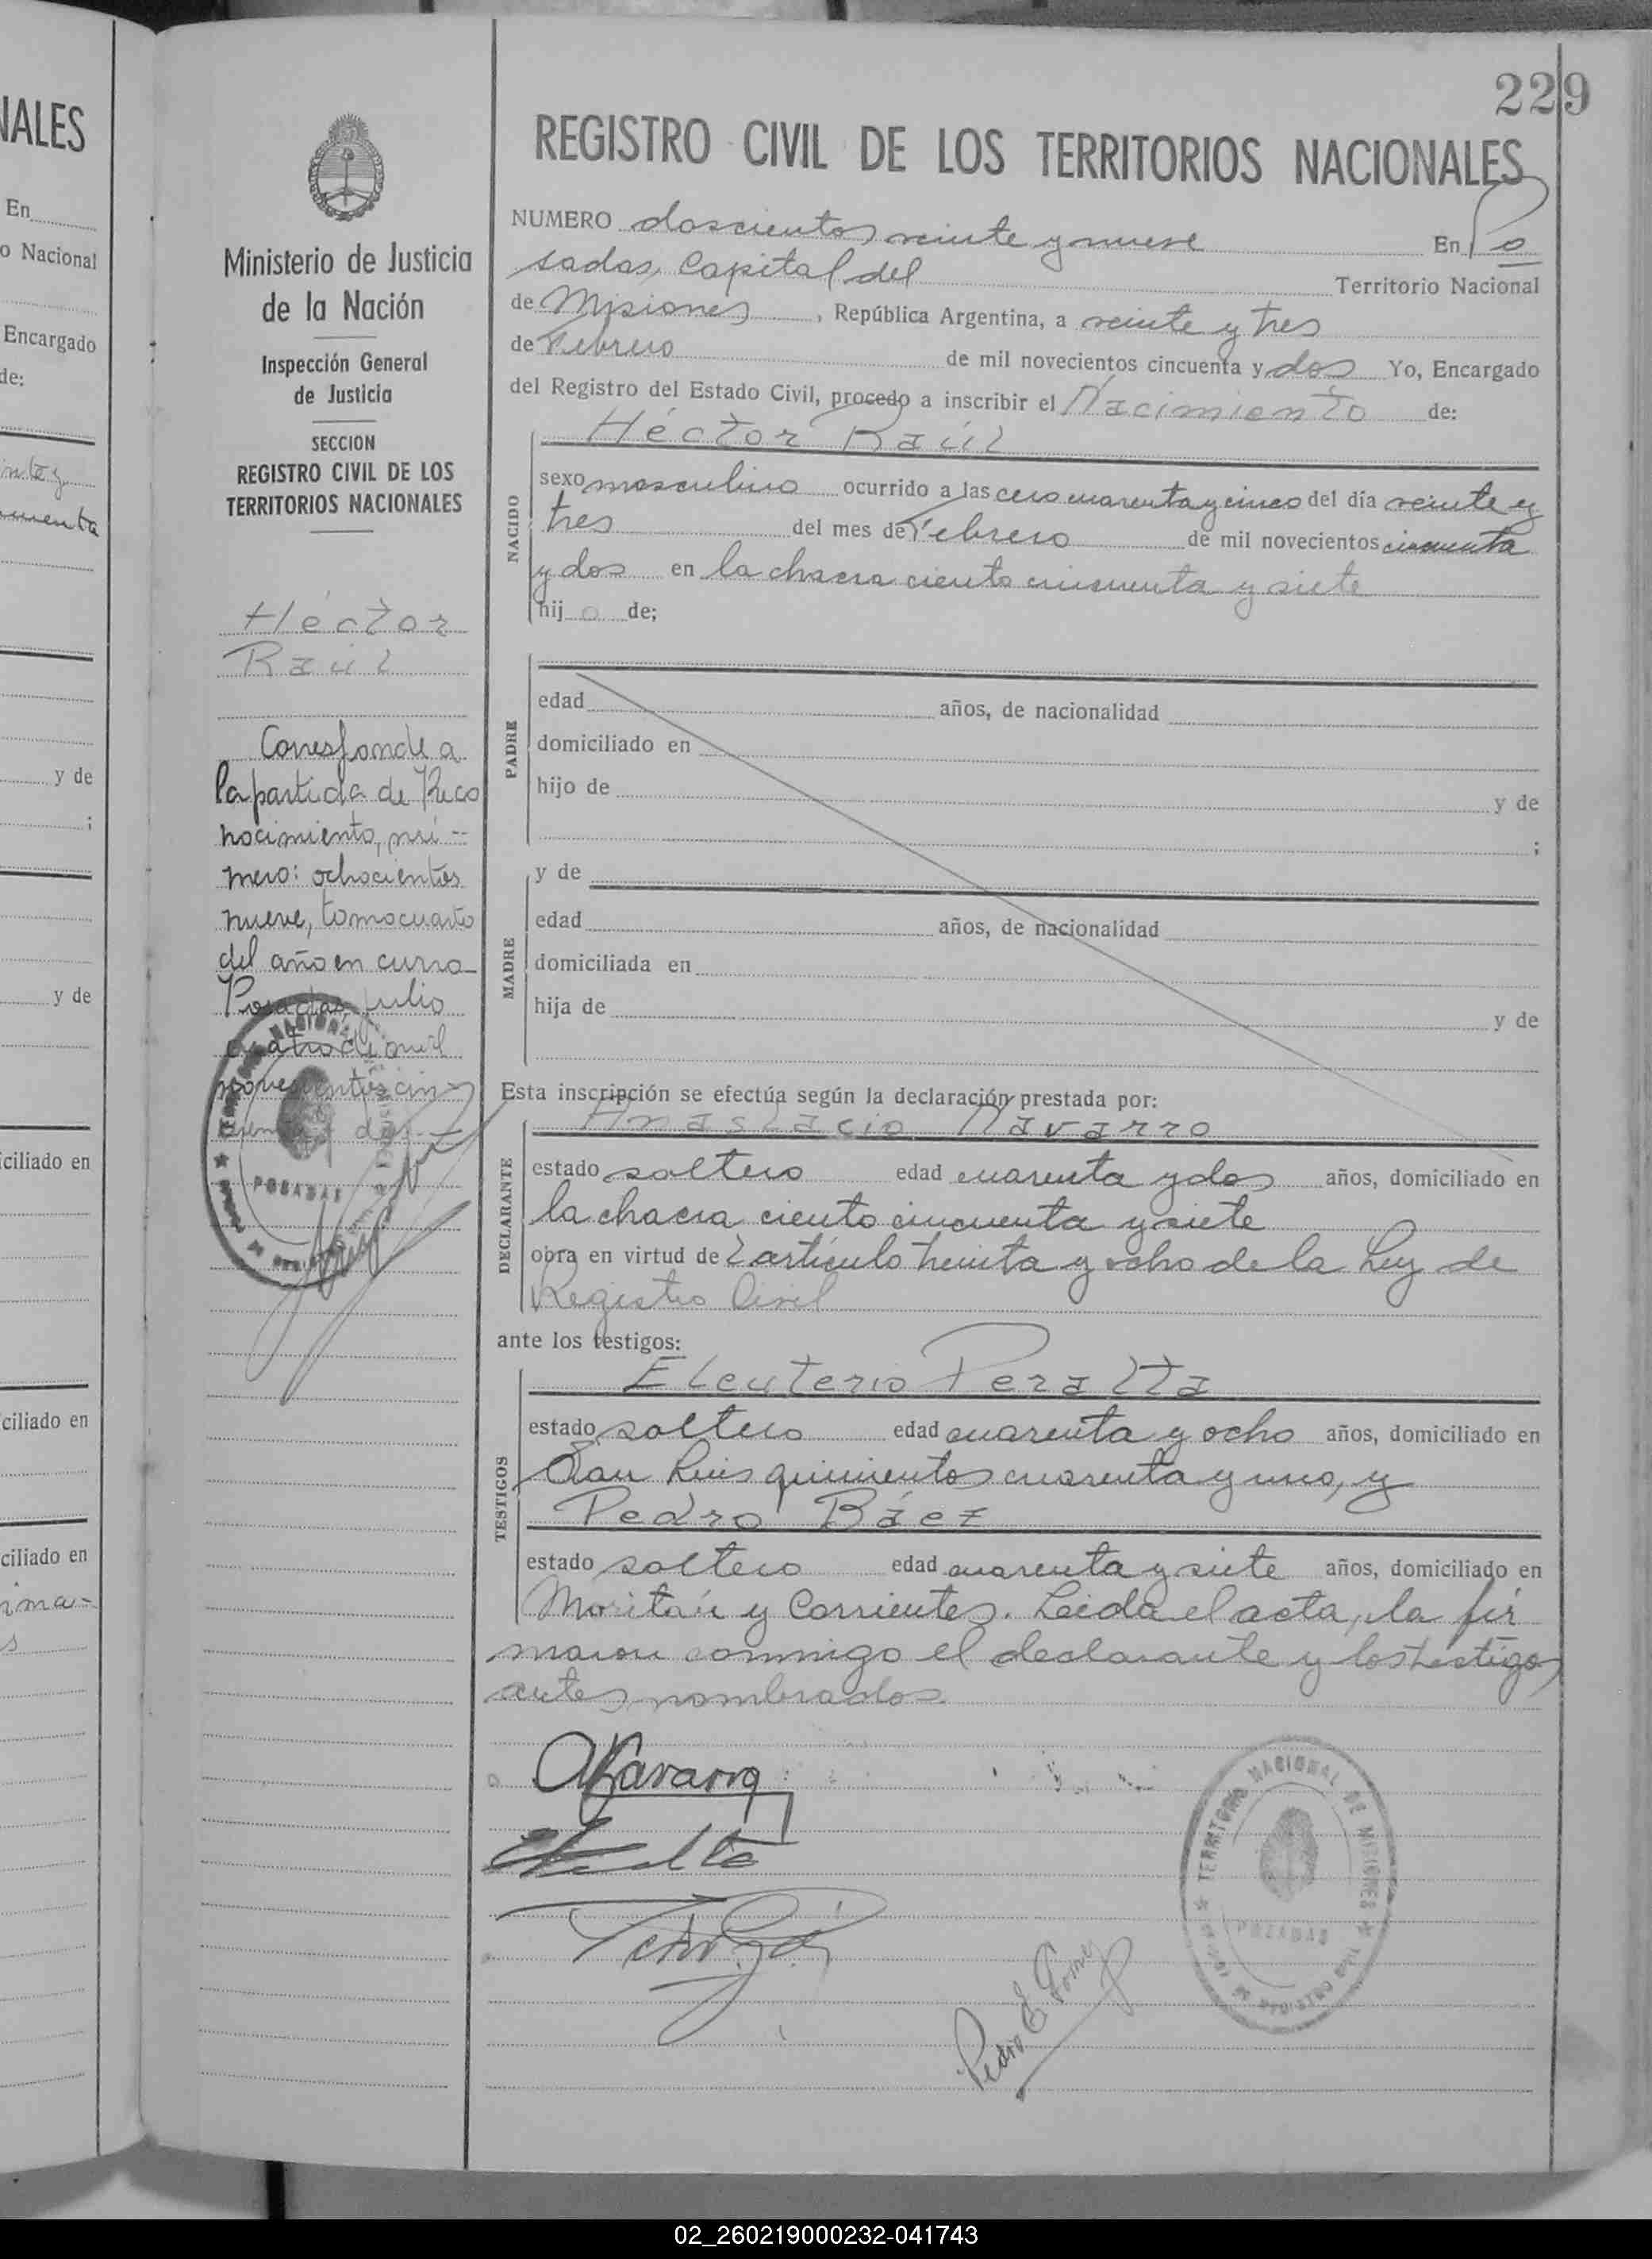 NALES
En
o Nacional
Encargado
de:
y de
;
y de
ciliado en
ciliado en
ciliado en
229
Ministerio de Justicia
de la Nación
Inspección General
de Justicia
SECCION
REGISTRO CIVIL DE LOS
TERRITORIOS NACIONALES
Héctor
Raúl
Corresponde a
la partida de Reco
nocimiento, nú-
mero: ochocientos
nueve, tomo cuarto
del año en curso
Posadas, julio
cuatro de mil
novecientos cin
cuenta y dos
POSADAS
REGISTRO CIVIL DE LOS TERRITORIOS NACIONALES
NUMERO doscientos veinte y nueve En Po
sadas, Capital del Territorio Nacional
de Misiones, República Argentina, a veinte y tres
de Febrero de mil novecientos cincuenta y dos Yo, Encargado
del Registro del Estado Civil, procedo a inscribir el Nacimiento de:
Héctor Raúl
NACIDO
sexo masculino ocurrido a las cero cuarenta y cinco del día veinte y
tres del mes de Febrero de mil novecientos cincuenta
y dos en la chacra ciento cincuenta y siete
hijo de;
PADRE
edad años, de nacionalidad
domiciliado en
hijo de y de
;
MADRE
y de
edad años, de nacionalidad
domiciliada en
hija de y de
Esta inscripción se efectúa según la declaración prestada por:
Anastacio Navarro
DECLARANTE
estado soltero edad cuarenta y dos años, domiciliado en
la chacra ciento cincuenta y siete
obra en virtud del artículo treinta y ocho de la Ley de
Registro Civil
ante los testigos:
Eleuterio Peralta
TESTIGOS
estado soltero edad cuarenta y ocho años, domiciliado en
San Luis quinientos cuarenta y uno, y
Pedro Báez
estado soltero edad cuarenta y siete años, domiciliado en
Moritán y Corrientes. Leida el acta, la fir
maron conmigo el declarante y los testigos
antes nombrados.
ANavarro
Pedro E Gomez
TERRITORIO NACIONAL DE MISIONES
POSADAS
02_260219000232-041743